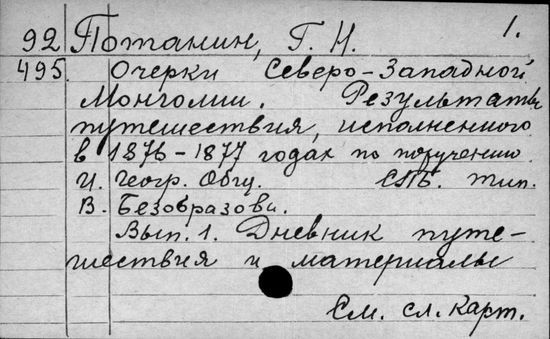 1.
92 Потанин, Г. Н.
495. Очерки Северо-Западной
Монголии. Результаты
путешествия, исполненного
в 1876-1877 годах по поручению
И. Геогр. Общ. СПБ. тип.
В. Безобразова.
Вып. 1. Дневник путе-
шествия и материалы
См. сл. карт.